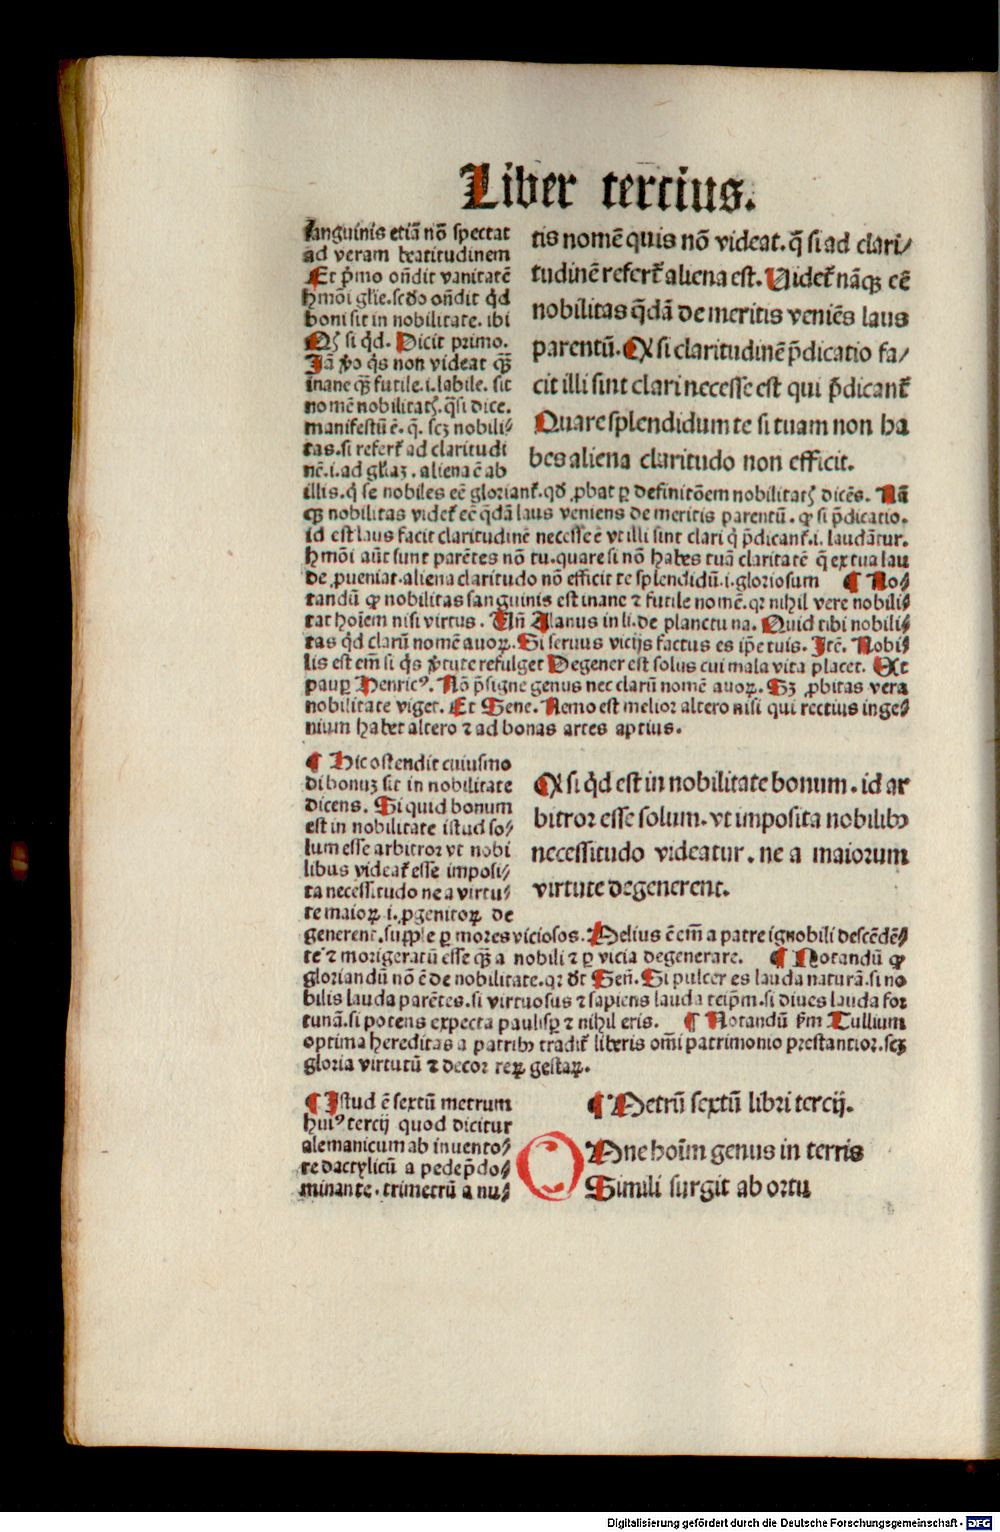 Liber tercius.
sanguinis etiã nõ spectat
ad veram beatitudinem
Et p̃mo oñdit vanitatẽ
hmõi glie. scđo oñdit qd̃
boni sit in nobilitate. ibi
Qꝫ si qd̃. Dicit primo.
Jã ṽo q̃s non videat qꝫ̃
inane qꝫ̃ futile .i. labile. sit
nomẽ nobilitatꝭ. q̃si dice.
manifestũ ẽ. q̃. scꝫ nobili⸗
tas. si refert̃ ad claritudi
nẽ .i. ad gl̃iaꝫ. aliena ẽ ab
tis nomẽ quis nõ videat. q̃ si ad clari⸗
tudinẽ refert̃ aliena est. Videt̃ nãqꝫ eẽ
nobilitas q̃dã de meritis veniẽs laus
parentũ. Qꝫ si claritudinẽ p̃dicatio fa⸗
cit illi sint clari necesse est qui p̃dicant̃
Quare splendidum te si tuam non ha
bes aliena claritudo non efficit.
illis. q̇ se nobiles eẽ gloriant̃. qđ ꝓbat ꝑ definitõem nobilitatꝭ dicẽs. Nã
qꝫ nobilitas videt̃ eẽ q̃dã laus veniens de meritis parentũ. ꝙ si p̃dicatio.
id est laus facit claritudinẽ necesse ẽ vt illi sint clari q̇ p̃dicant̃ .i. laudãtur.
hmõi aũt sunt parẽtes nõ tu. quare si nõ habes tuã claritatẽ q̃ ex tua lau
de ꝓueniat. aliena claritudo nõ efficit te splendidũ .i. gloriosum ¶ No⸗
tandũ ꝙ nobilitas sanguinis est inane ⁊ futile nomẽ. qꝛ nihil vere nobili⸗
tat hoĩem nisi virtus. Vñ Alanus in li. de planctu na. Quid tibi nobili⸗
tas qd̃ clarũ nomẽ auoꝝ. Si seruus vicijs factus es ip̃e tuis. Itẽ. Nobi⸗
lis est em̃ si q̃s ṽtute refulget Degener est solus cui mala vita placet. Et
paup̱ Henricꝰ. Nõ p̃signe genus nec clarũ nomẽ auoꝝ. Sꝫ ꝓbitas vera
nobilitate viget. Et Sene. Nemo est melior altero nisi qui rectius inge⸗
nium habet altero ⁊ ad bonas artes aptius.
¶ Hic ostendit cuiusmo
di bonuꝫ sit in nobilitate
dicens. Si quid bonum
est in nobilitate istud so⸗
lum esse arbitror vt nobi
libus videat̃ esse imposi⸗
ta necessitudo ne a virtu⸗
te maioꝝ .i. ꝓgenitoꝝ de
Qꝫ si qd̃ est in nobilitate bonum. id ar
bitror esse solum. vt imposita nobilibꝰ
necessitudo videatur. ne a maiorum
virtute degenerent.
generent. supple ꝑ mores viciosos. Melius ẽ em̃ a patre ignobili descẽdẽ⸗
te ⁊ morigeratũ esse qꝫ̃ a nobili ⁊ ꝑ vicia degenerare. ¶ Notandũ ꝙ
gloriandũ nõ ẽ de nobilitate. qꝛ dt̃ Señ. Si pulcer es lauda naturã. si no
bilis lauda parẽtes. si virtuosus ⁊ sapiens lauda teip̃m. si diues lauda for
tunã. si potens expecta paulisꝑ ⁊ nihil eris. ¶ Notandũ ẜm Tullium
optima hereditas a patribꝰ tradit̃ liberis om̃i patrimonio prestantior. scꝫ
gloria virtutũ ⁊ decor reꝝ gestaꝝ.
¶ Istud ẽ sextũ metrum
huiꝰ tercij quod dicitur
alemanicum ab inuento⸗
re dactylicũ a pede p̃do⸗
minante. trimetrũ a nu⸗
¶ Metrũ sextũ libri tercij.
OMne hoĩm genus in terris
Simili surgit ab ortu
Digitalisierung gefördert durch die Deutsche Forschungsgemeinschaft - DFG